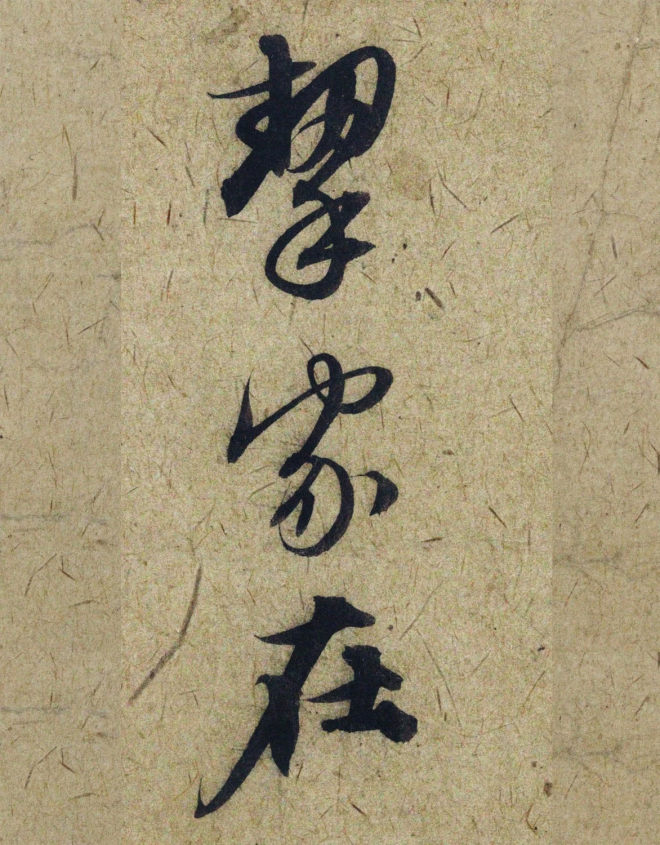 挈家在